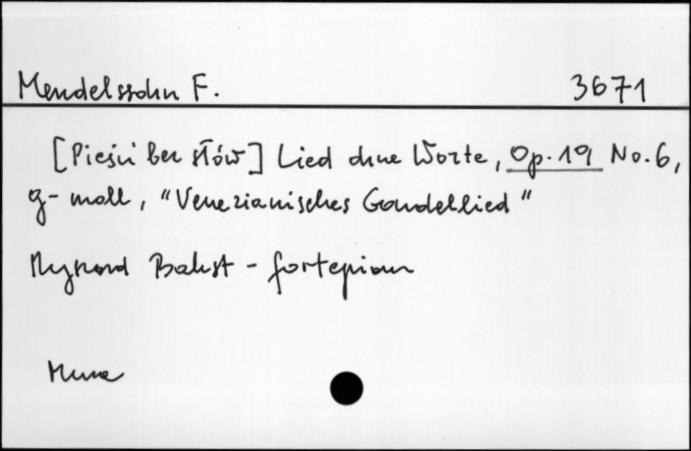 Mendelssohn F. 3671
[Pieśni bez słów] Lied ohne Worte, Op. 19 No. 6,
g-moll, "Venezianisches Gondellied"
Ryszard Bakst - fortepian
Muza